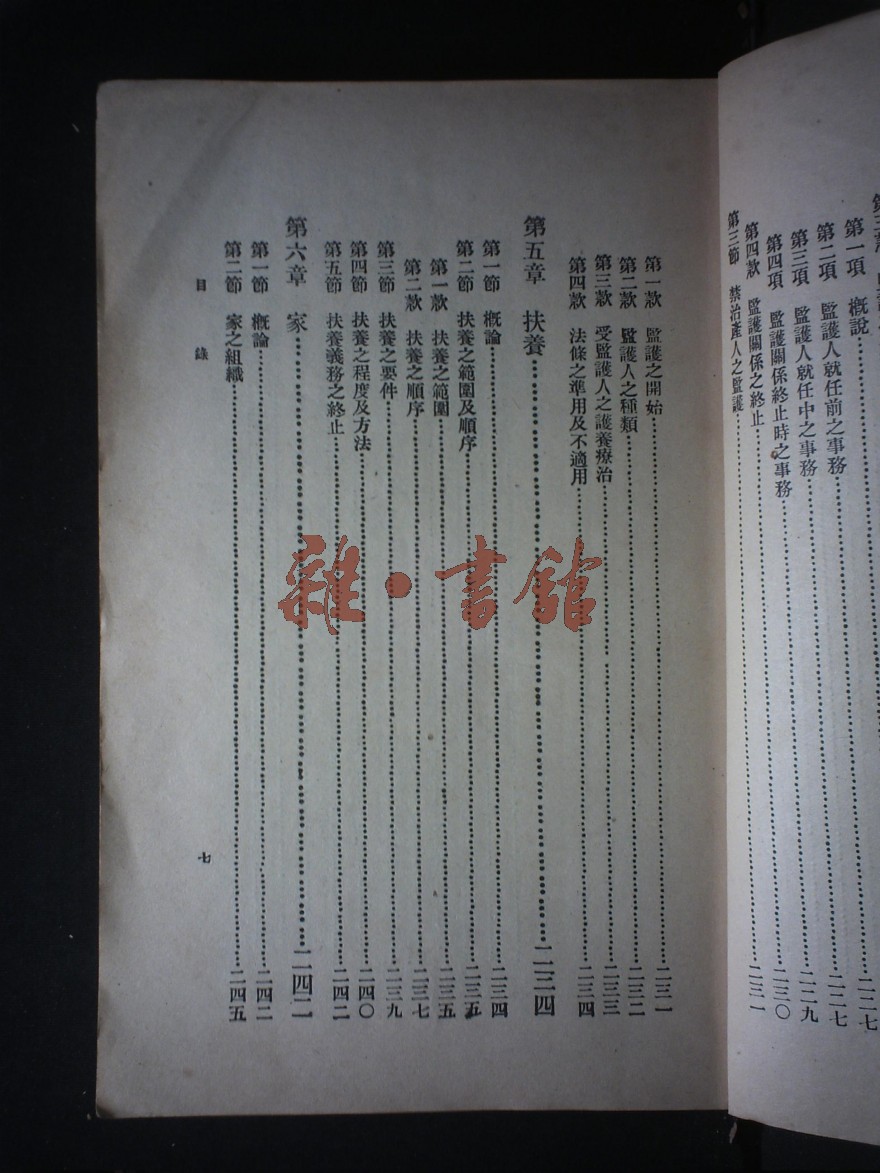 第一項　概說……二二七
第二項　監護人就任前之事務……二二七
第三項　監護人就任中之事務……二二九
第四項　監護關係終止時之事務……二三〇
第四款　監護關係之終止……二三一
第三節　禁治產人之監護
第一款　監護之開始……二三一
第二款　監護人之種類……二三二
第三款　受監護人之護養療治……二三三
第四款　法條之準用及不適用……二三四
第五章　扶養……二三四
第一節　概論……二三四
第二節　扶養之範圍及順序……二三五
第一款　扶養之範圍……二三五
第二款　扶養之順序……二三七
第三節　扶養之要件……二三九
第四節　扶養之程度及方法……二四〇
第五節　扶養義務之終止……二四二
第六章　家……二四二
第一節　概論……二四二
第二節　家之組織……二四五
目　錄　七
雜·書館